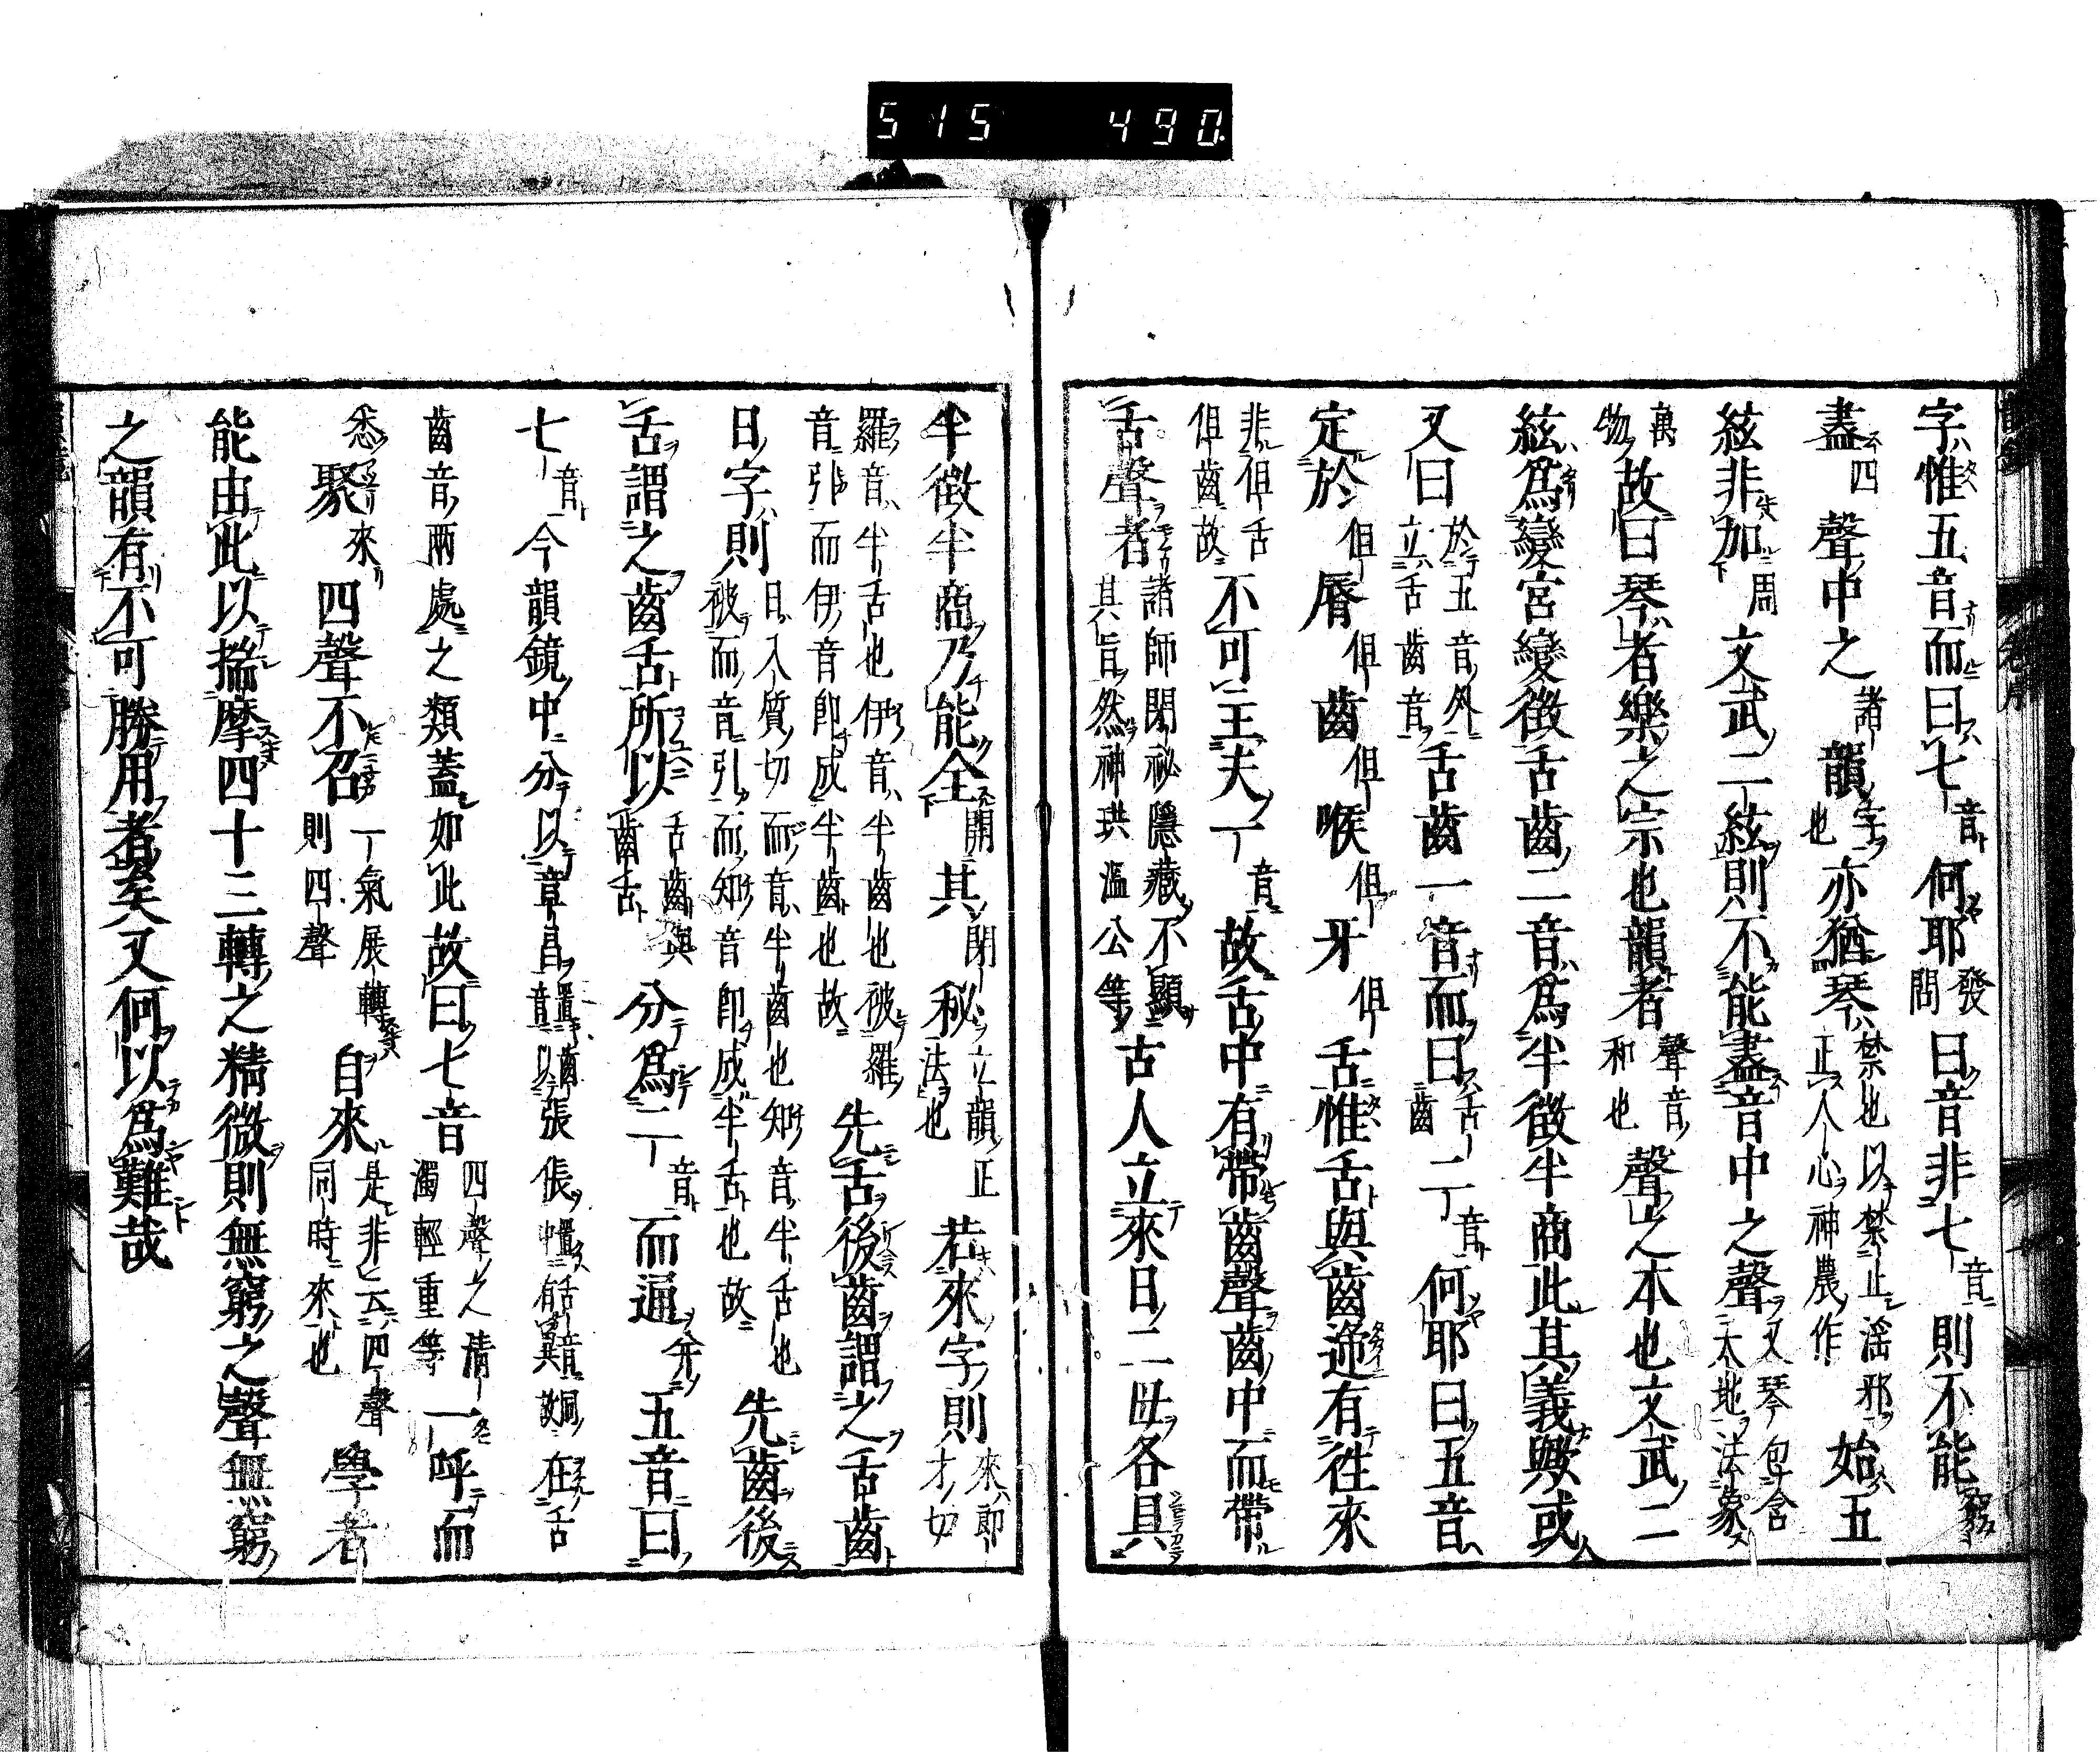 515 490.
字惟五音而曰七音何耶發問曰音非七音則不能窮
盡四聲中之諸韻字也亦猶琴禁也以禁止滛邪正人心神農作始五
絃非加周文武二絃則不能盡音中之聲又琴包含太地法象
萬物故曰琴者樂之宗也韻者聲音和也聲之本也文武二
絃爲變宮變徵舌齒二音爲半徵半商此其義歟或
又曰於五音外立舌齒音舌齒一音而曰舌齒二音何耶曰五音
定於但脣但齒但喉但牙但舌惟舌與齒迭有往來
非但舌但齒故不可主夫一音故舌中有帶齒聲齒中而帶
舌聲者諸師閉祕隱藏不顯其旨然神珙溫公等古人立來日二母各具
半徵半商乃能全開其閉秘立韻法也正若來字則來即才切
羅音半舌也伊音半齒也被羅音引而伊音即成半齒也故先舌後齒謂之舌齒
日字則日入質切而音半齒也知音半舌也被而音引而知音即成半舌也故先齒後
舌謂之齒舌所以舌齒與齒舌分爲二音而通分五音曰
七音今韻鏡中分以章昌置齒音以張倀幢有舌音異故在舌
齒音兩處之類蓋如此故曰七音四聲之清濁輕重等一呼而
悉聚來四聲不召一氣展轉則四聲自來是非云四聲同時來也學者
能由此以揣摩四十三轉之精微則無窮之聲無窮
之韻有不可勝用者矣又何以爲難哉